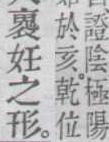 證陰極陽
於亥。乾位
裹妊之形。